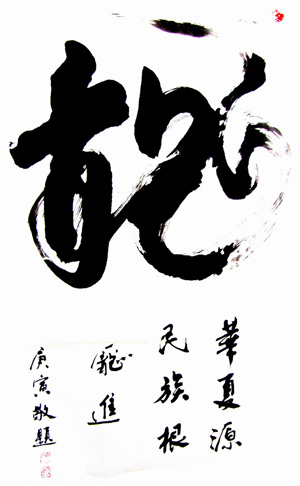 龍
華夏源
民族根
進
庚寅敬題